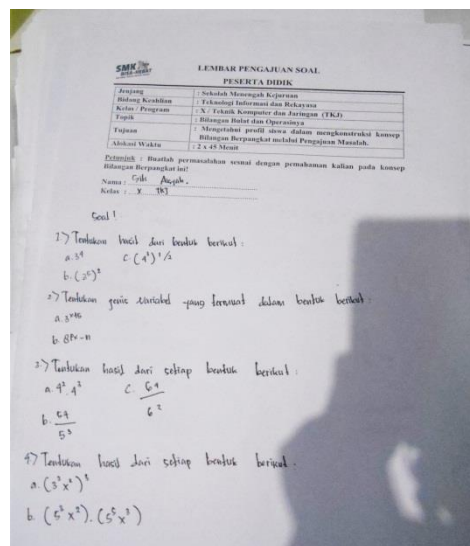 SMK
BISA-HEBAT
LEMBAR PENGAJUAN SOAL
PESERTA DIDIK
Jenjang : Sekolah Menengah Kejuruan
Bidang Keahlian : Teknologi Informasi dan Rekayasa
Kelas / Program : X / Teknik Komputer dan Jaringan (TKJ)
Topik : Bilangan Bulat dan Operasinya
Tujuan : Mengetahui profil siswa dalam mengkonstruksi konsep
Bilangan Berpangkat melalui Pengajuan Masalah.
Alokasi Waktu : 2 x 45 Menit
Petunjuk : Buatlah permasalahan sesuai dengan pemahaman kalian pada konsep
Bilangan Berpangkat ini!
Nama : Siti
Kelas : X TKJ
Soal !
1.) Tentukan hasil dari bentuk berikut :
a. 3⁴ c. (4²)^1/2
b. (2⁵)²
2.) Tentukan jenis variabel yang termuat dalam bentuk berikut :
a.
b. 8^Px-n
3.) Tentukan hasil dari setiap bentuk berikut :
a. 4².4³ c. 6⁴/6²
b. 5⁴/5³
4.) Tentukan hasil dari setiap bentuk berikut .
a. (3³x²)³
b. (5³x²).(5⁵x³)